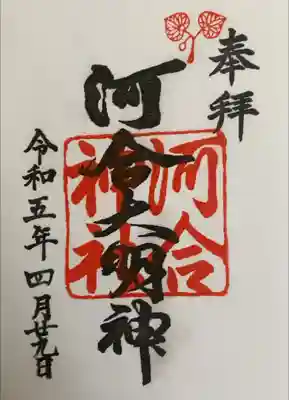 奉拝
河會大明神
河合
神社
令和五年四月廿九日